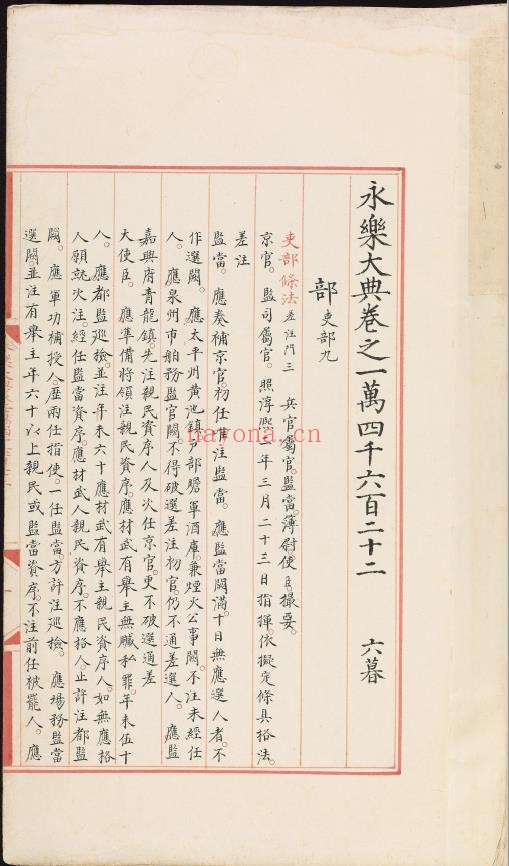 永樂大典卷之一萬四千六百二十二 六暮
部 吏部九
吏部條法 差注門三 兵官。屬官。監當。簿尉。使臣。撮要。
京官。監司屬官。照淳熙 年三月二十三日指揮。依擬定條具格法。
差注
監當。應奏補京官。初任 注監當。應監當闕。滿十日無應選人者。不
作選闕。應太平州黃池鎮戶部贍軍酒庫。兼煙火公事闕。不注未經任
人。應泉州市舶務監官闕。不得破選差注初官。仍不通差選人。 應監
嘉興府青龍鎮。先注親民資序人。及次任京官。更不破選通差
大使臣。 應準備將領。注親民資序。應材武有舉主無贓私罪。年未伍十
人。應都監巡檢。並注年未六十應材武有舉主親民資序人。如無應格
人願就。次注。經任監當資序。應材武人。親民資序。不應格人。止許注都監
闕。 應軍功補授人。歷兩任指使。一任監當。方許注巡檢。 應場務監當
選闕。並注有舉主年六十以上親民或監當資序。不注前任被罷人。應
nayona.cn